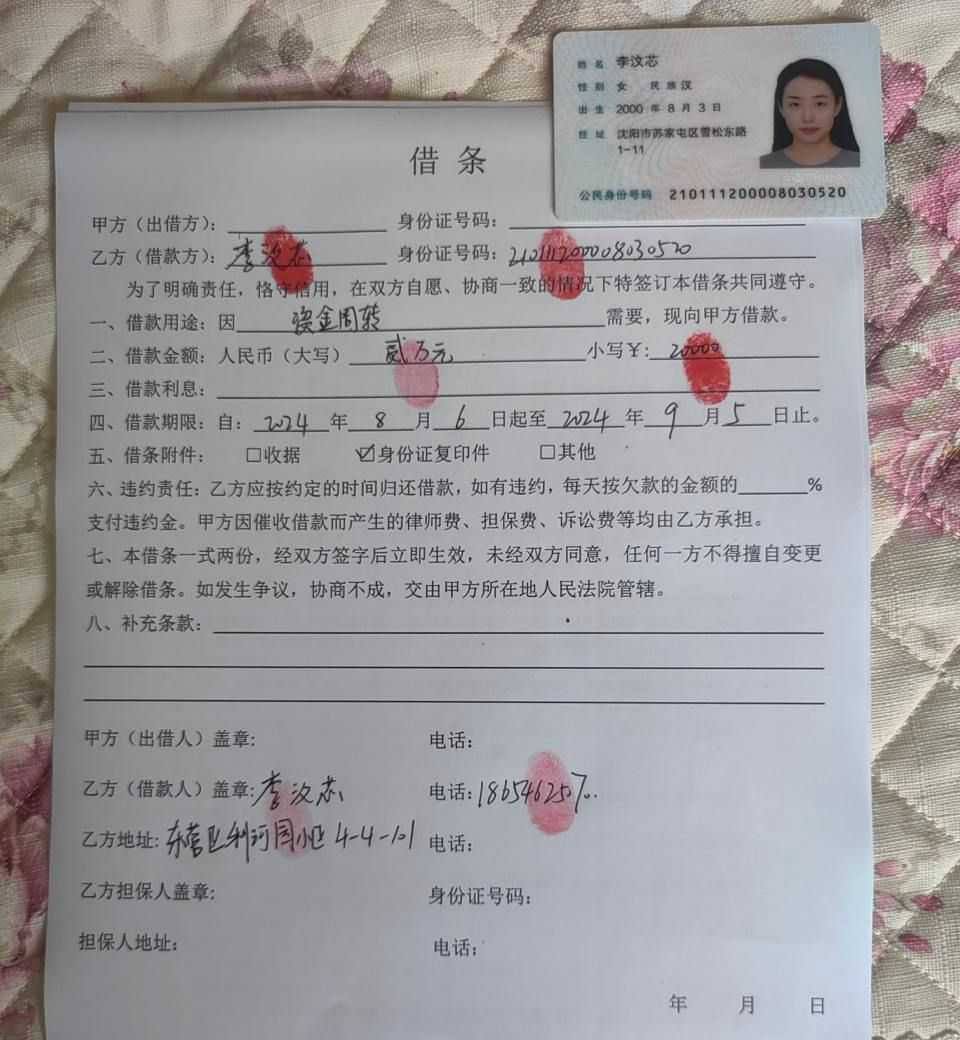 姓名 李汶芯
性别 女 民族 汉
出生 2000 年 8 月 3 日
住址 沈阳市苏家屯区雪松东路
1-11
公民身份号码 210111200008030520
借条
甲方（出借方）： 身份证号码：
乙方（借款方）：李汶芯 身份证号码：210111200008030520
为了明确责任，恪守信用，在双方自愿、协商一致的情况下特签订本借条共同遵守。
一、借款用途：因 资金周转 需要，现向甲方借款。
二、借款金额：人民币（大写） 贰万元 小写￥: 20000
三、借款利息：
四、借款期限：自：2024 年 8 月 6 日起至 2024 年 9 月 5 日止。
五、借条附件： □收据 ☑身份证复印件 □其他
六、违约责任：乙方应按约定的时间归还借款，如有违约，每天按欠款的金额的______%
支付违约金。甲方因催收借款而产生的律师费、担保费、诉讼费等均由乙方承担。
七、本借条一式两份，经双方签字后立即生效，未经双方同意，任何一方不得擅自变更
或解除借条。如发生争议，协商不成，交由甲方所在地人民法院管辖。
八、补充条款：
甲方（出借人）盖章: 电话：
乙方（借款人）盖章: 李汶芯 电话：186546257
乙方地址: 东营区利河园小区 4-4-101 电话：
乙方担保人盖章: 身份证号码：
担保人地址: 电话：
年 月 日